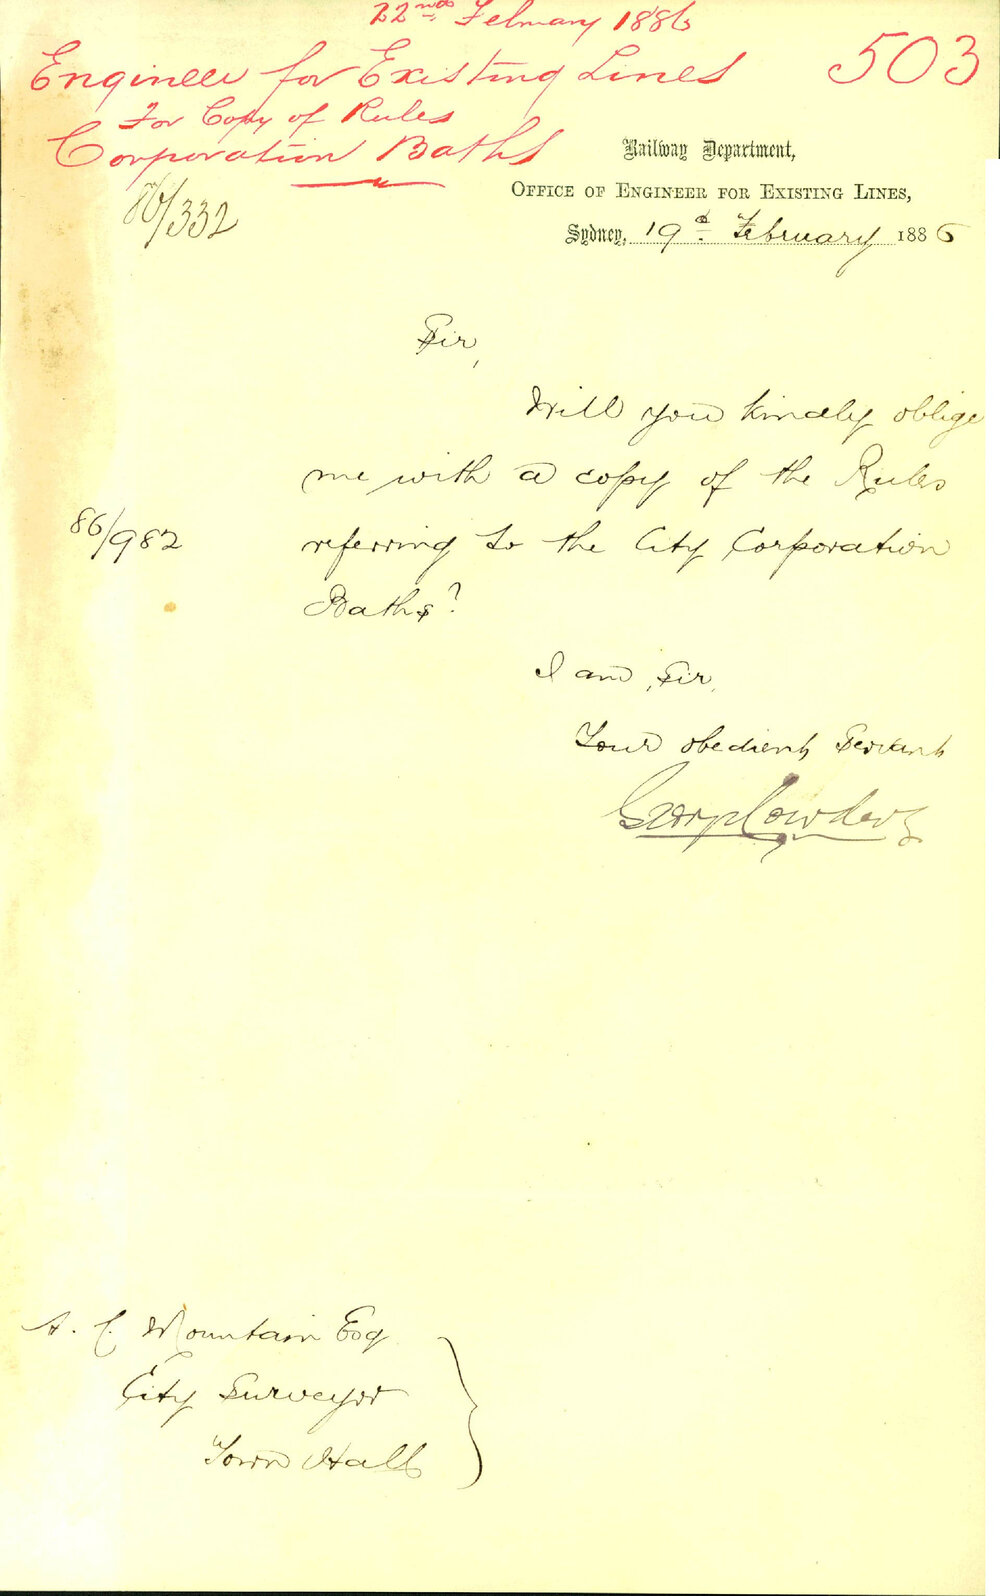 22nd February 1886
503
Engineer for Existing Lines
For Copy of Rules
Corporation Baths
86/332
Railway Department,
OFFICE OF ENGINEER FOR EXISTING LINES,
Sydney, 19th February 1886
Sir,
Will you kindly oblige
me with a copy of the Rules
referring to the City Corporation
Baths?
86/982
I am, Sir,
Your obedient Servant
Geo Cowdery
A. C. Mountain Esq
City Surveyor
Town Hall